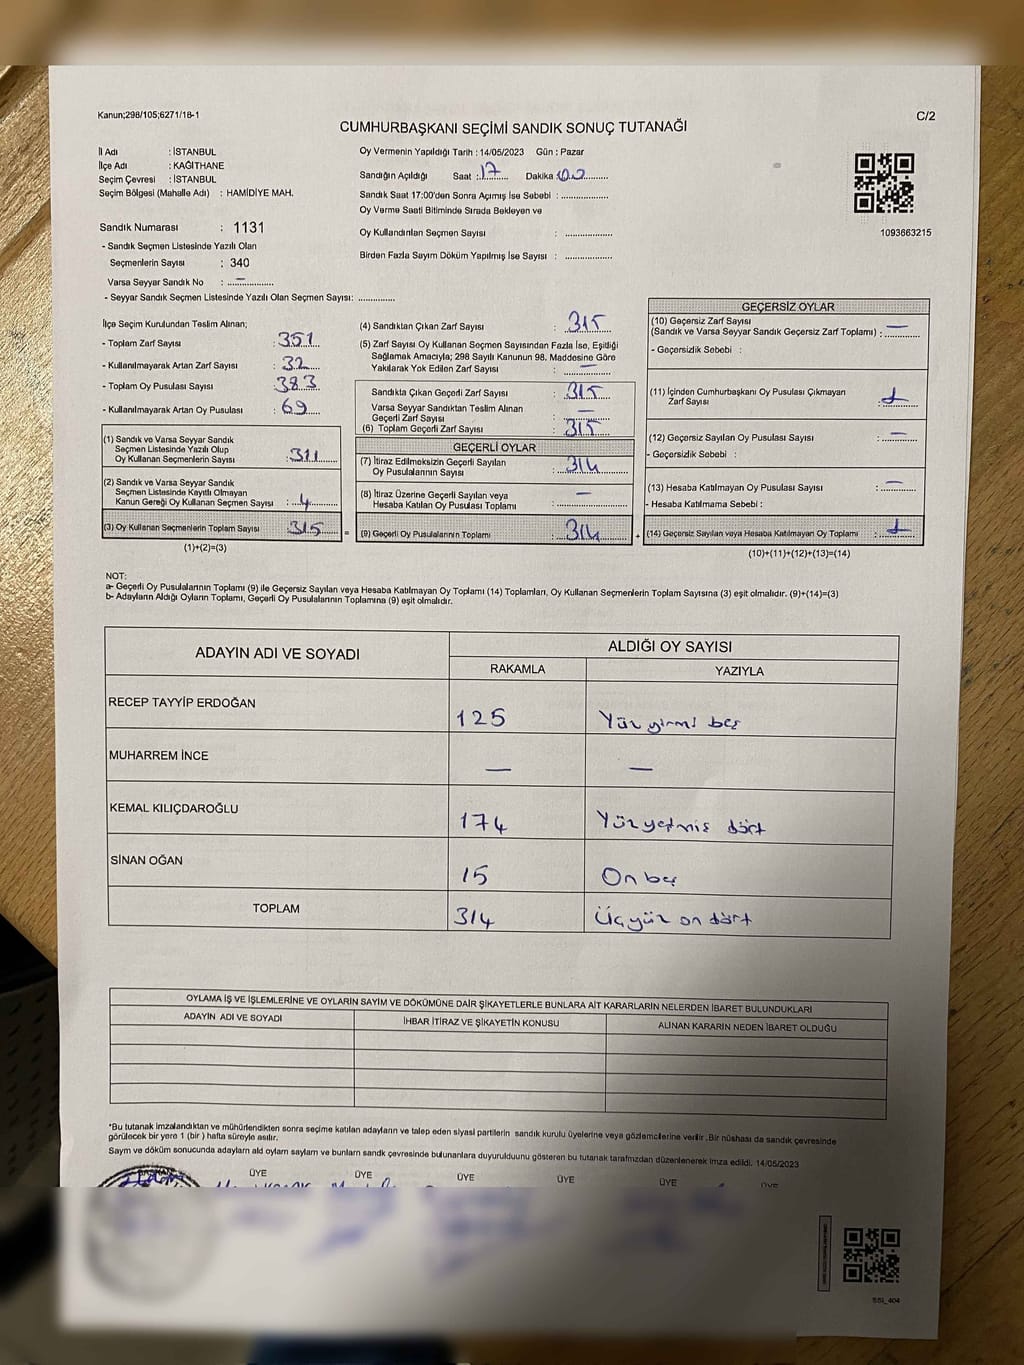 Kanun;298/105;6271/18-1
C/2
CUMHURBAŞKANI SEÇİMİ SANDIK SONUÇ TUTANAĞI
İl Adı : İSTANBUL
İlçe Adı : KAĞITHANE
Seçim Çevresi : İSTANBUL
Seçim Bölgesi (Mahalle Adı) : HAMİDİYE MAH.
Oy Vermenin Yapıldığı Tarih : 14/05/2023 Gün : Pazar
Sandığın Açıldığı Saat : 17 Dakika 00
Sandık Saat 17:00'den Sonra Açımış İse Sebebi :
Oy Verme Saati Bitiminde Sırada Bekleyen ve
Oy Kullandırılan Seçmen Sayısı :
Birden Fazla Sayım Döküm Yapılmış İse Sayısı :
1093663215
Sandık Numarası : 1131
- Sandık Seçmen Listesinde Yazılı Olan
Seçmenlerin Sayısı : 340
Varsa Seyyar Sandık No : —
- Seyyar Sandık Seçmen Listesinde Yazılı Olan Seçmen Sayısı:
İlçe Seçim Kurulundan Teslim Alınan;
- Toplam Zarf Sayısı : 351
- Kullanılmayarak Artan Zarf Sayısı : 32
- Toplam Oy Pusulası Sayısı : 383
- Kullanılmayarak Artan Oy Pusulası : 69
(1) Sandık ve Varsa Seyyar Sandık
Seçmen Listesinde Yazılı Olup
Oy Kullanan Seçmenlerin Sayısı : 311
(2) Sandık ve Varsa Seyyar Sandık
Seçmen Listesinde Kayıtlı Olmayan
Kanun Gereği Oy Kullanan Seçmen Sayısı : 4
(3) Oy Kullanan Seçmenlerin Toplam Sayısı 315 =
(1)+(2)=(3)
(4) Sandıktan Çıkan Zarf Sayısı : 315
(5) Zarf Sayısı Oy Kullanan Seçmen Sayısından Fazla İse, Eşitliği
Sağlamak Amacıyla; 298 Sayılı Kanunun 98. Maddesine Göre
Yakılarak Yok Edilen Zarf Sayısı : —
Sandıkta Çıkan Geçerli Zarf Sayısı : 315
Varsa Seyyar Sandıktan Teslim Alınan
Geçerli Zarf Sayısı : —
(6) Toplam Geçerli Zarf Sayısı : 315
GEÇERLİ OYLAR
(7) İtiraz Edilmeksizin Geçerli Sayılan
Oy Pusulalarının Sayısı : 314
(8) İtiraz Üzerine Geçerli Sayılan veya
Hesaba Katılan Oy Pusulası Toplamı : —
(9) Geçerli Oy Pusulalarının Toplamı : 314 +
GEÇERSİZ OYLAR
(10) Geçersiz Zarf Sayısı
(Sandık ve Varsa Seyyar Sandık Geçersiz Zarf Toplamı) : —
- Geçersizlik Sebebi :
(11) İçinden Cumhurbaşkanı Oy Pusulası Çıkmayan
Zarf Sayısı : 1
(12) Geçersiz Sayılan Oy Pusulası Sayısı : —
- Geçersizlik Sebebi :
(13) Hesaba Katılmayan Oy Pusulası Sayısı : —
- Hesaba Katılmama Sebebi :
(14) Geçersiz Sayılan veya Hesaba Katılmayan Oy Toplamı : 1
(10)+(11)+(12)+(13)=(14)
NOT:
a- Geçerli Oy Pusulalarının Toplamı (9) ile Geçersiz Sayılan veya Hesaba Katılmayan Oy Toplamı (14) Toplamları, Oy Kullanan Seçmenlerin Toplam Sayısına (3) eşit olmalıdır. (9)+(14)=(3)
b- Adayların Aldığı Oyların Toplamı, Geçerli Oy Pusulalarının Toplamına (9) eşit olmalıdır.
ADAYIN ADI VE SOYADI
ALDIĞI OY SAYISI
RAKAMLA YAZIYLA
RECEP TAYYİP ERDOĞAN 125 Yüz yirmi beş
MUHARREM İNCE — —
KEMAL KILIÇDAROĞLU 174 Yüzyetmiş dört
SİNAN OĞAN 15 On beş
TOPLAM 314 Üçyüz on dört
OYLAMA İŞ VE İŞLEMLERİNE VE OYLARIN SAYIM VE DÖKÜMÜNE DAİR ŞİKAYETLERLE BUNLARA AİT KARARLARIN NELERDEN İBARET BULUNDUKLARI
ADAYIN ADI VE SOYADI İHBAR İTİRAZ VE ŞİKAYETİN KONUSU ALINAN KARARIN NEDEN İBARET OLDUĞU
*Bu tutanak imzalandıktan ve mühürlendikten sonra seçime katılan adayların ve talep eden siyasi partilerin sandık kurulu üyelerine veya gözlemcilerine verilir .Bir nüshası da sandık çevresinde
görülecek bir yere 1 (bir ) hafta süreyle asılır.
Saym ve döküm sonucunda adayların ald oyların saylam ve bunların sandk çevresinde bulunanlara duyurulduunu gösteren bu tutanak tarafmzdan düzenlenerek imza edildi. 14/05/2023
BAŞKAN ÜYE ÜYE ÜYE ÜYE ÜYE ÜYE